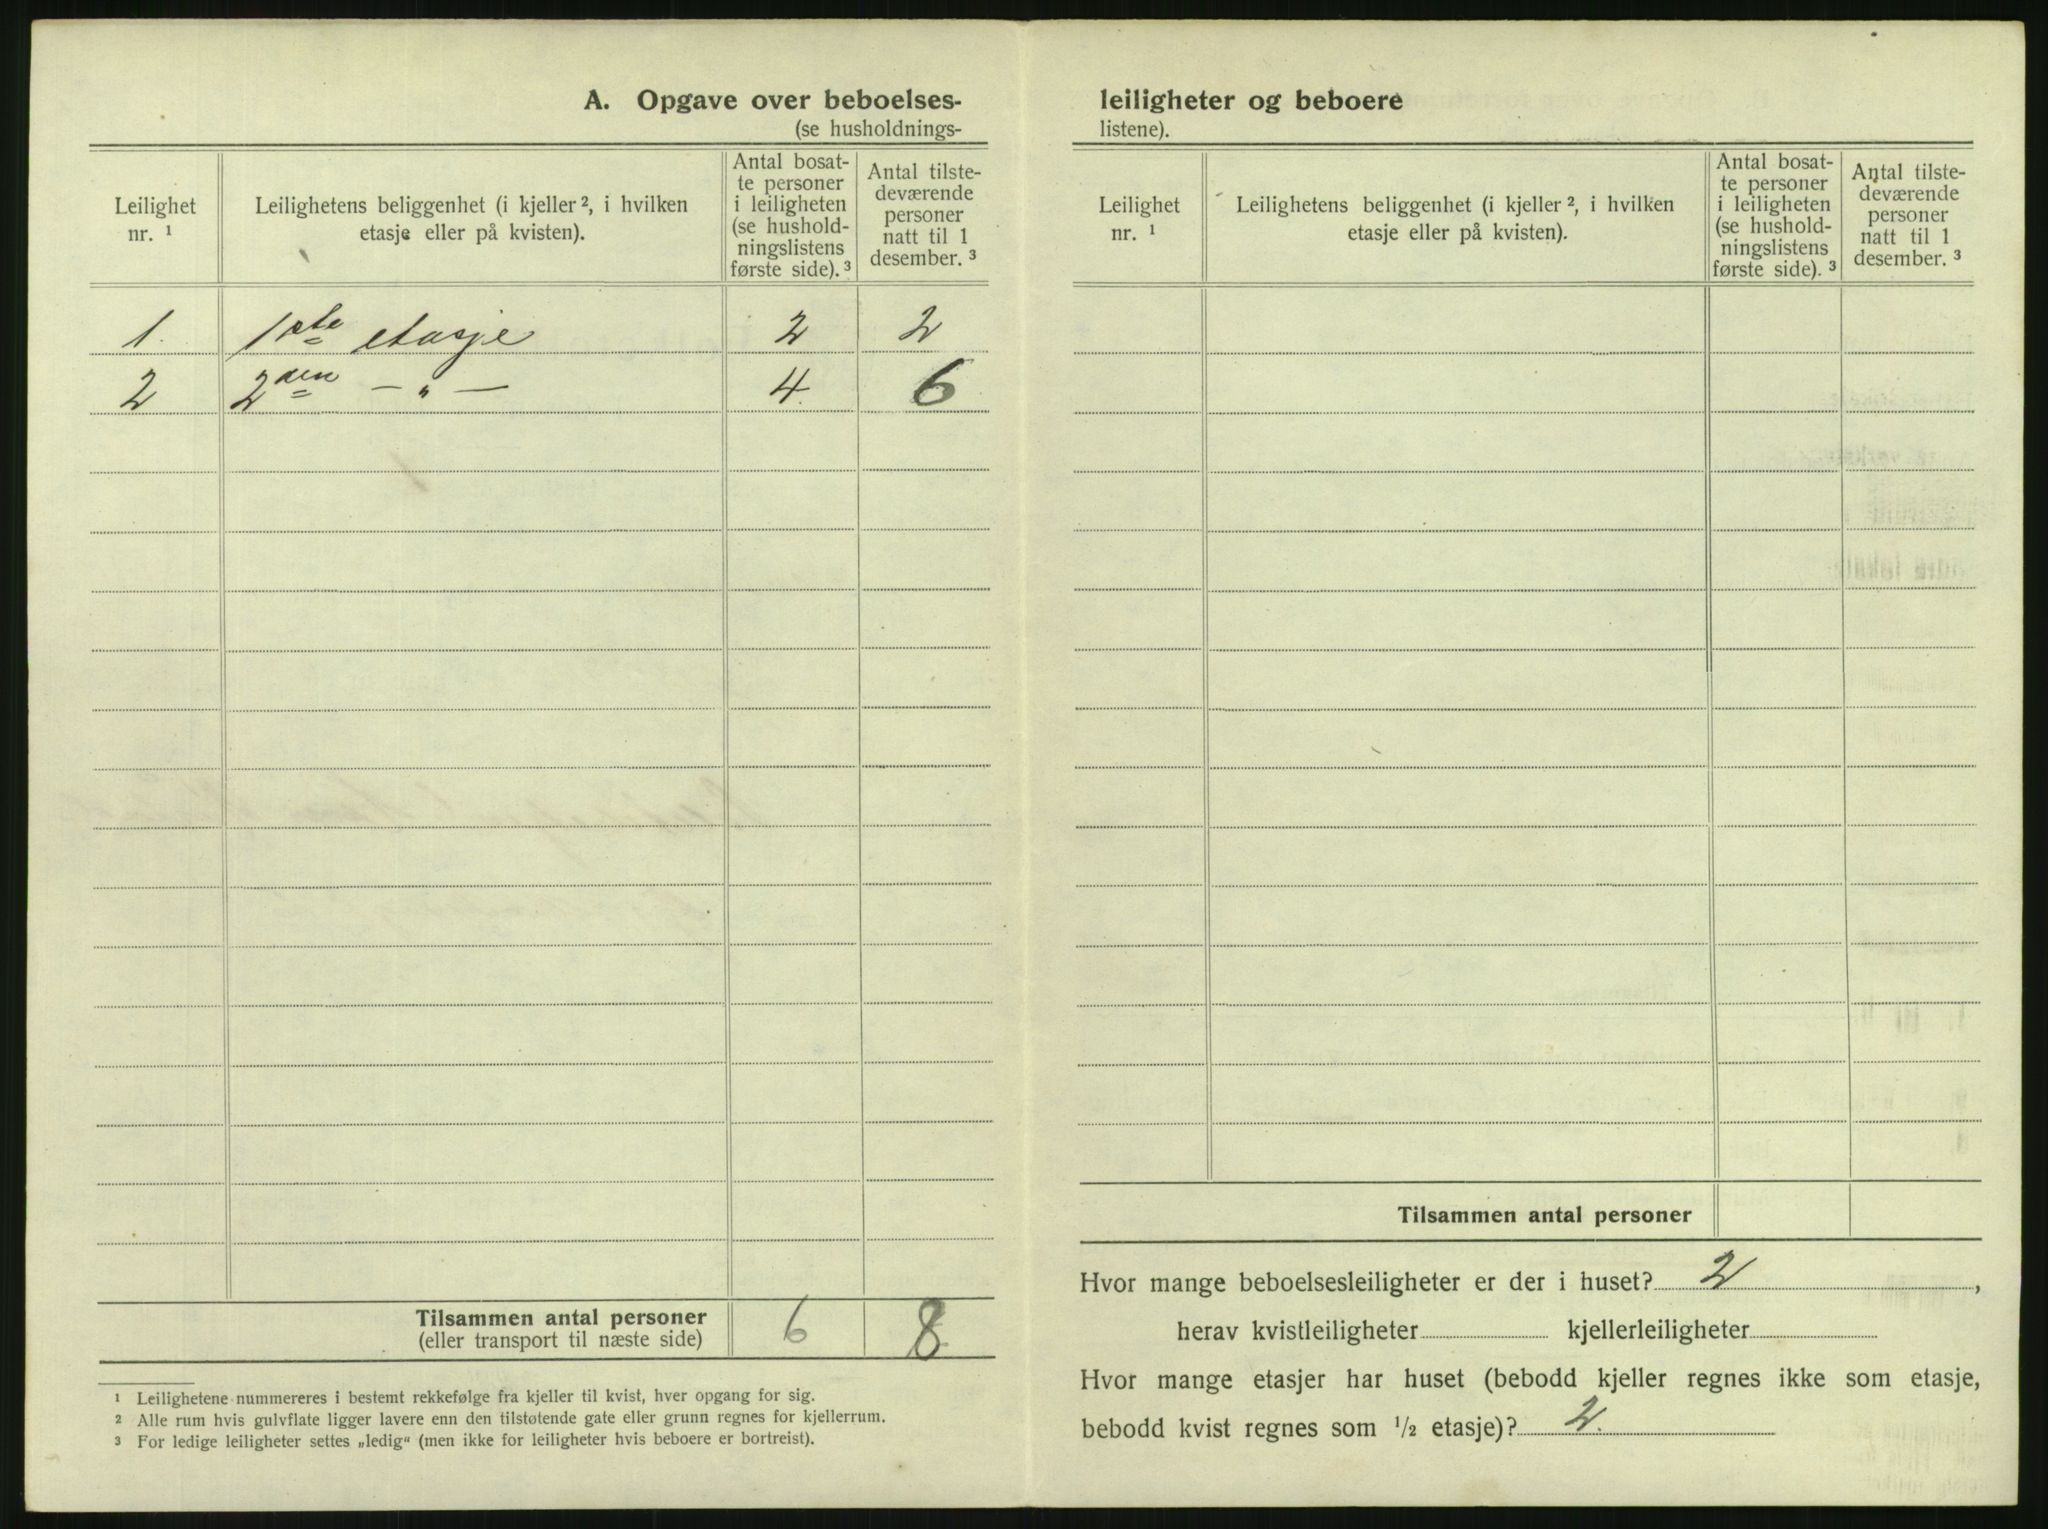 A. Opgave over beboelses-
(se husholdnings-
Leilighet nr. ¹
Leilighetens beliggenhet (i kjeller ², i hvilken etasje eller på kvisten).
Antal bosat-
te personer
i leiligheten
(se hushold-
ningslistens
første side). ³
Antal tilste-
deværende
personer
natt til 1
desember. ³
1. 1ste etasje 2 2
2 2den — „ — 4 6
Tilsammen antal personer 6 8
(eller transport til næste side)
¹ Leilighetene nummereres i bestemt rekkefølge fra kjeller til kvist, hver opgang for sig.
² Alle rum hvis gulvflate ligger lavere enn den tilstøtende gate eller grunn regnes for kjellerrum.
³ For ledige leiligheter settes „ledig“ (men ikke for leiligheter hvis beboere er bortreist).
leiligheter og beboere
listene).
Leilighet nr. ¹
Leilighetens beliggenhet (i kjeller ², i hvilken etasje eller på kvisten).
Antal bosat-
te personer
i leiligheten
(se hushold-
ningslistens
første side). ³
Antal tilste-
deværende
personer
natt til 1
desember. ³
Tilsammen antal personer
Hvor mange beboelsesleiligheter er der i huset? 2 ,
herav kvistleiligheter kjellerleiligheter
Hvor mange etasjer har huset (bebodd kjeller regnes ikke som etasje,
bebodd kvist regnes som ½ etasje)? 2.